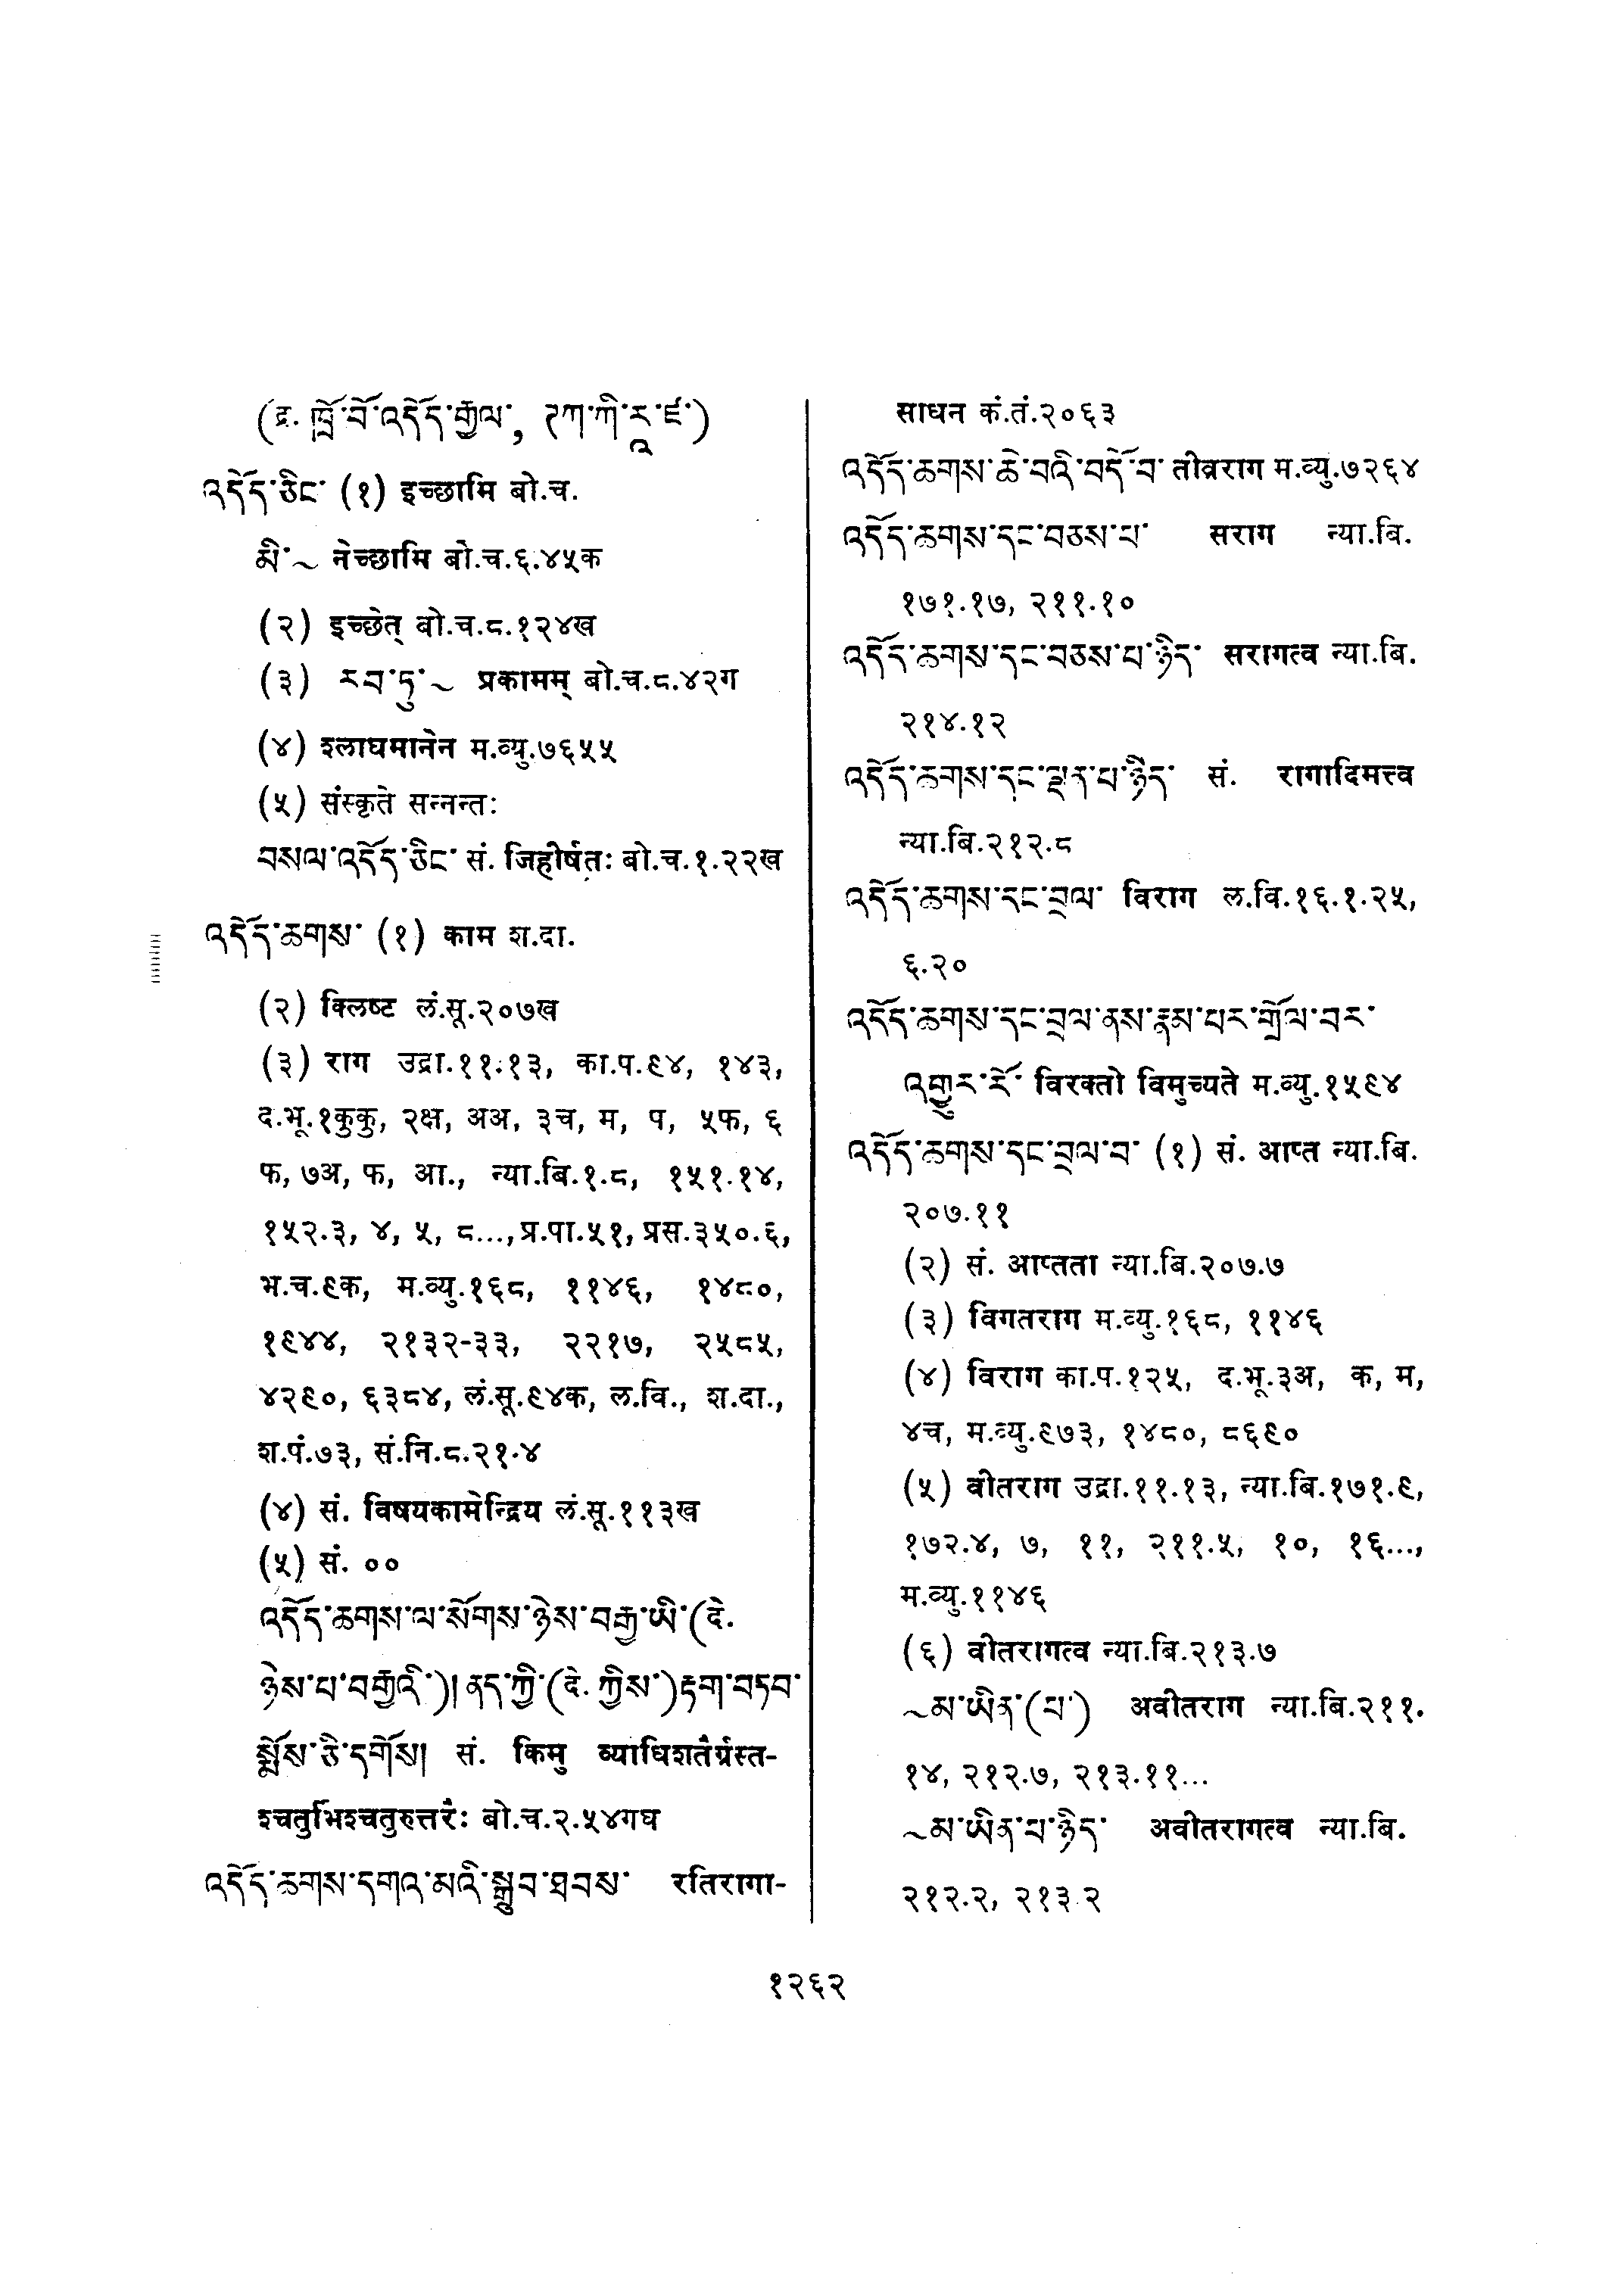 (द्र. ཁྲོ་བོ་འདོད་རྒྱལ་, ཊཀ་ཀི་རཱ་ཛ་)
འདོད་ཅིང་ (१) इच्छामि बो.च.
མི་~ नेच्छामि बो.च.६.४५क
(२) इच्छेत् बो.च.८.१२४ख
(३) རབ་ཏུ་~ प्रकामम् बो.च.८.४२ग
(४) श्लाघमानेन म.व्यु.७६५५
(५) संस्कृते सन्नन्तः
བསལ་འདོད་ཅིང་ सं. जिहीर्षतः बो.च.१.२२ख
འདོད་ཆགས་ (१) काम श.दा.
(२) क्लिष्ट लं.सू.२०७ख
(३) राग उद्रा.११.१३, का.प.९४, १४३,
द.भू.१कुकु, २क्ष, अअ, ३च, म, प, ५फ, ६
फ, ७अ, फ, आ., न्या.बि.१.८, १५१.१४,
१५२.३, ४, ५, ८..., प्र.पा.५१, प्रस.३५०.६,
भ.च.९क, म.व्यु.१६८, ११४६, १४८०,
१९४४, २१३२-३३, २२१७, २५८५,
४२९०, ६३८४, लं.सू.९४क, ल.वि., श.दा.,
श.पं.७३, सं.नि.८.२१.४
(४) सं. विषयकामेन्द्रिय लं.सू.११३ख
(५) सं. ००
འདོད་ཆགས་ལ་སོགས་ཉེས་བརྒྱ་ཡི་(दे.
ཉེས་པ་བརྒྱའི་)། ནད་ཀྱི་(दे. ཀྱིས་)རྟག་བཏབ་
སྨོས་ཅི་དགོས། सं. किमु व्याधिशतैर्ग्रस्त-
श्चतुर्भिश्चतुरुत्तरैः बो.च.२.५४गघ
འདོད་ཆགས་དགའ་མའི་སྒྲུབ་ཐབས་ रतिरागा-
साधन कं.तं.२०६३
འདོད་ཆགས་ཆེ་བའི་བདོ་བ་ तीव्रराग म.व्यु.७२६४
འདོད་ཆགས་དང་བཅས་པ་ सराग न्या.बि.
१७१.१७, २११.१०
འདོད་ཆགས་དང་བཅས་པ་ཉིད་ सरागत्व न्या.बि.
२१४.१२
འདོད་ཆགས་དང་ལྡན་པ་ཉིད་ सं. रागादिमत्त्व
न्या.बि.२१२.८
འདོད་ཆགས་དང་བྲལ་ विराग ल.वि.१६.१.२५,
६.२०
འདོད་ཆགས་དང་བྲལ་ནས་རྣམ་པར་གྲོལ་བར་
འགྱུར་རོ་ विरक्तो विमुच्यते म.व्यु.१५९४
འདོད་ཆགས་དང་བྲལ་བ་ (१) सं. आप्त न्या.बि.
२०७.११
(२) सं. आप्तता न्या.बि.२०७.७
(३) विगतराग म.व्यु.१६८, ११४६
(४) विराग का.प.१२५, द.भू.३अ, क, म,
४च, म.व्यु.९७३, १४८०, ८६९०
(५) वीतराग उद्रा.११.१३, न्या.बि.१७१.९,
१७२.४, ७, ११, २११.५, १०, १६...,
म.व्यु.११४६
(६) वीतरागत्व न्या.बि.२१३.७
~མ་ཡིན་(པ་) अवीतराग न्या.बि.२११.
१४, २१२.७, २१३.११...
~མ་ཡིན་པ་ཉིད་ अवीतरागत्व न्या.बि.
२१२.२, २१३.२
१२६२